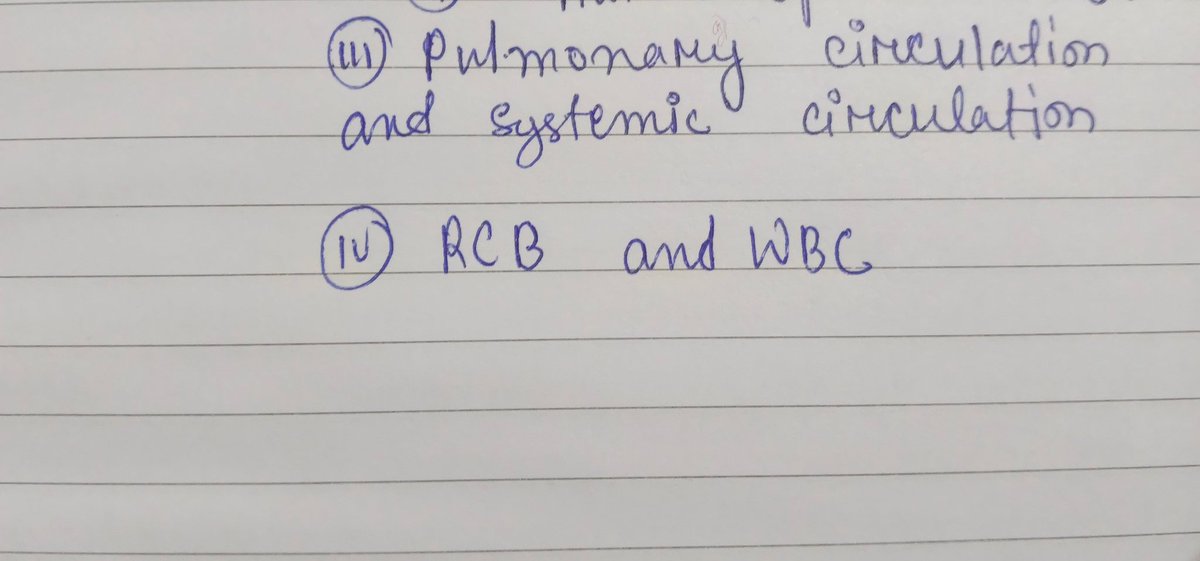 (iii) Pulmonary circulation
and systemic circulation
(iv) RCB and WBC